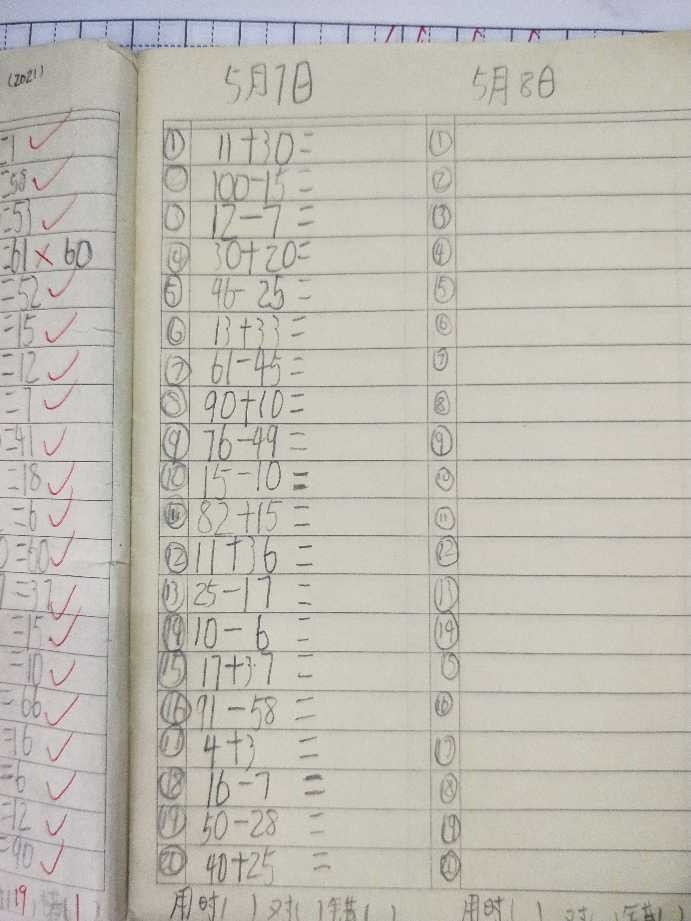 (2021)
=1
=58
=53
=61 × 60
=52
=15
=12
=7
=41
=18
=6
=60
=37
=15
=10
=66
=16
=6
=12
=90
19 错 1 )
5月7日
① 11+30=
100-15=
12-7=
④ 30+20=
⑤ 46-25=
⑥ 13+33=
⑦ 61-45=
⑧ 90+10=
⑨ 76-49=
⑩ 15-10=
⑪ 82+15=
⑫ 11+36=
⑬ 25-17=
⑭ 10-6=
⑮ 17+37=
⑯ 91-58=
⑰ 4+3=
⑱ 16-7=
⑲ 50-28=
⑳ 40+25=
用时( ) 对( ) 错( )
5月8日
①
②
③
④
⑤
⑥
⑦
⑧
⑨
⑩
⑪
⑫
⑬
⑭
⑮
⑯
⑰
⑱
⑲
⑳
用时( ) 对( 错( )